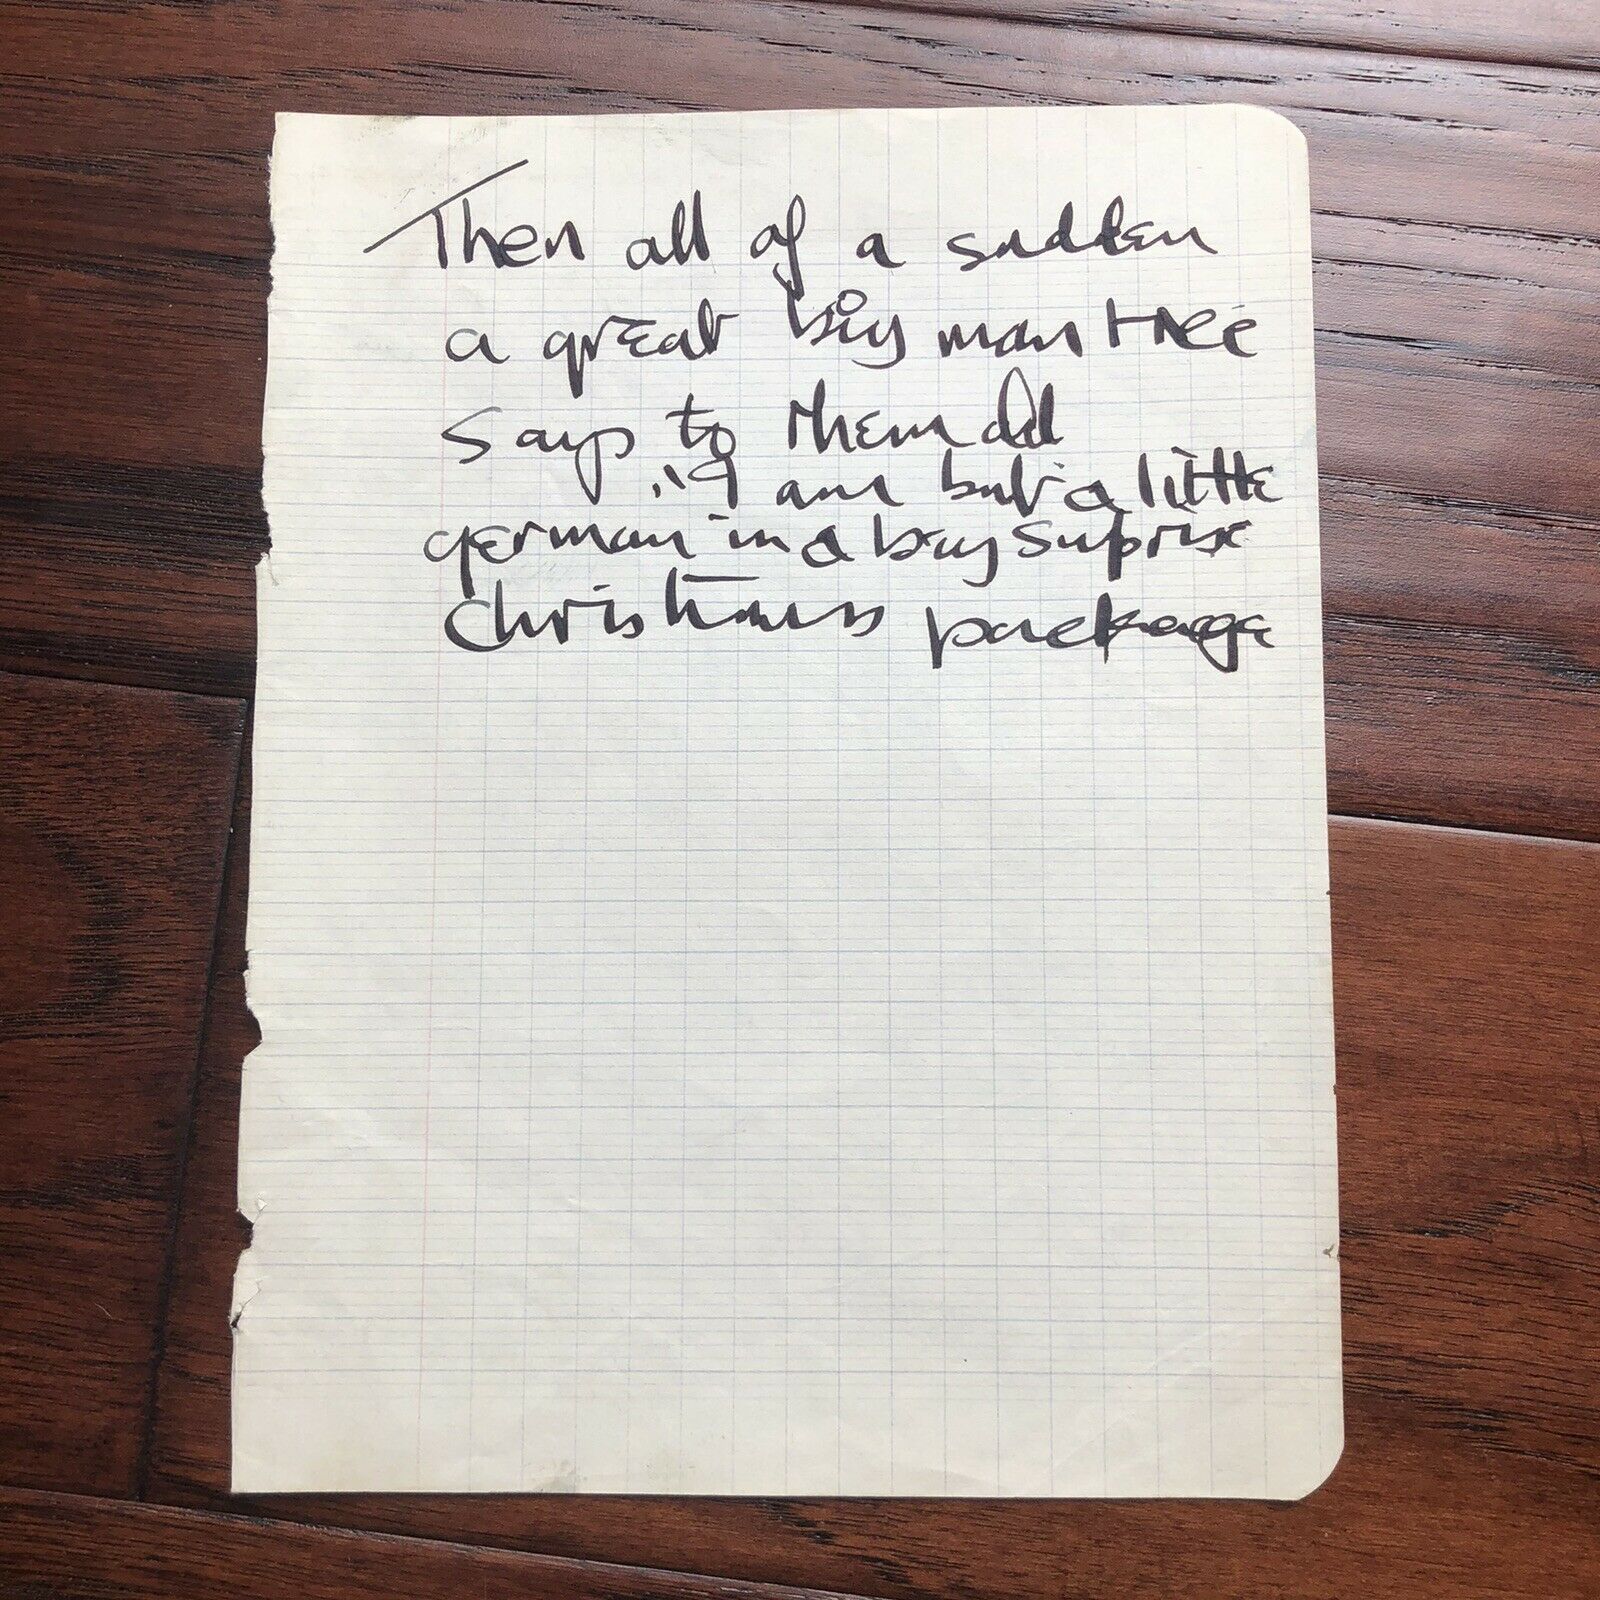 Then all of a sudden
a great big man tree
says to them all
"I am but a little
german in a big suprise
Christmas package